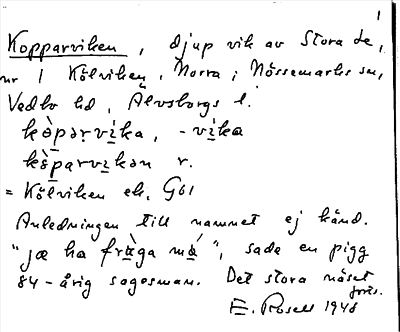 1
Kopparviken, djup vik av Stora Le,
nr 1 Kölviken, Norra; Nössemarks sn,
Vedbo hd, Älvsborgs l.
kòparvika, -vika
kòparvikan r.
= Kölviken ek. Göl
Anledningen till namnet ej känd.
"jæ ha fråga må", sade en pigg
84-årig sagesman. Det stora näset
forts.
E. Rosell 1948